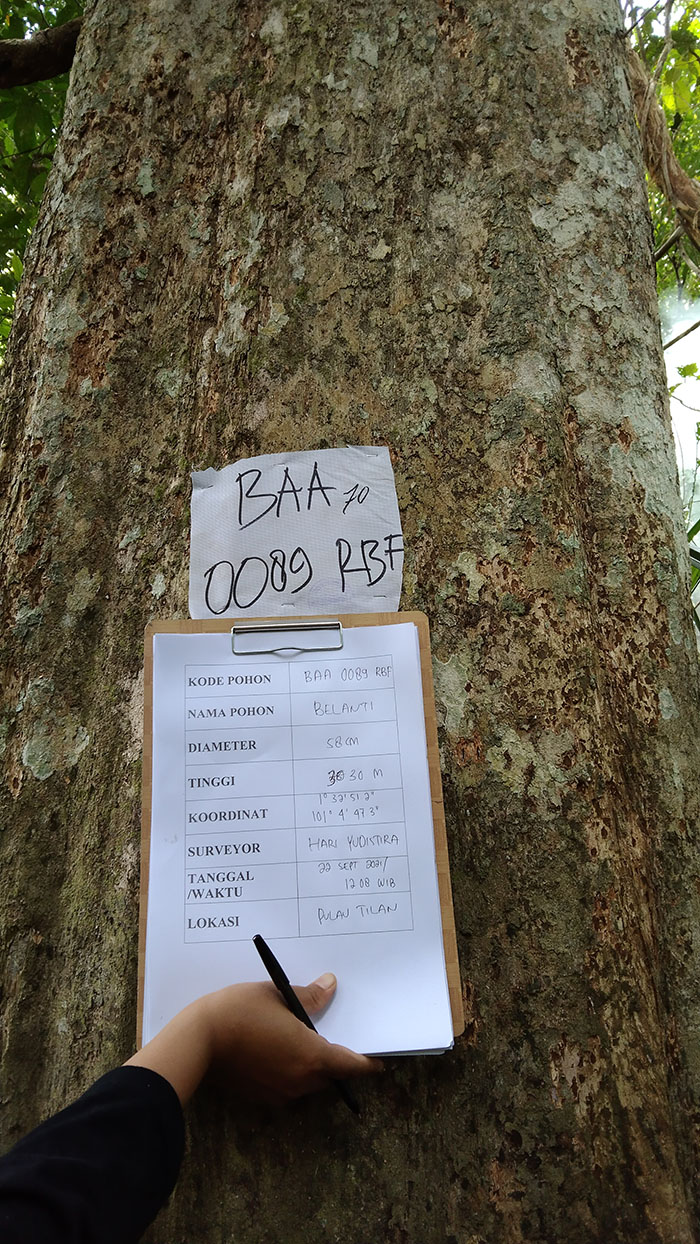 BAA 70
0089 RBF
KODE POHON BAA 0089 RBF
NAMA POHON BELANTI
DIAMETER 58 CM
TINGGI 30 M
KOORDINAT 1° 32' 51.2"
101° 4' 47.3"
SURVEYOR HARI YUDISTIRA
TANGGAL /WAKTU 22 SEPT 2021/
12 08 WIB
LOKASI PULAU TILAN